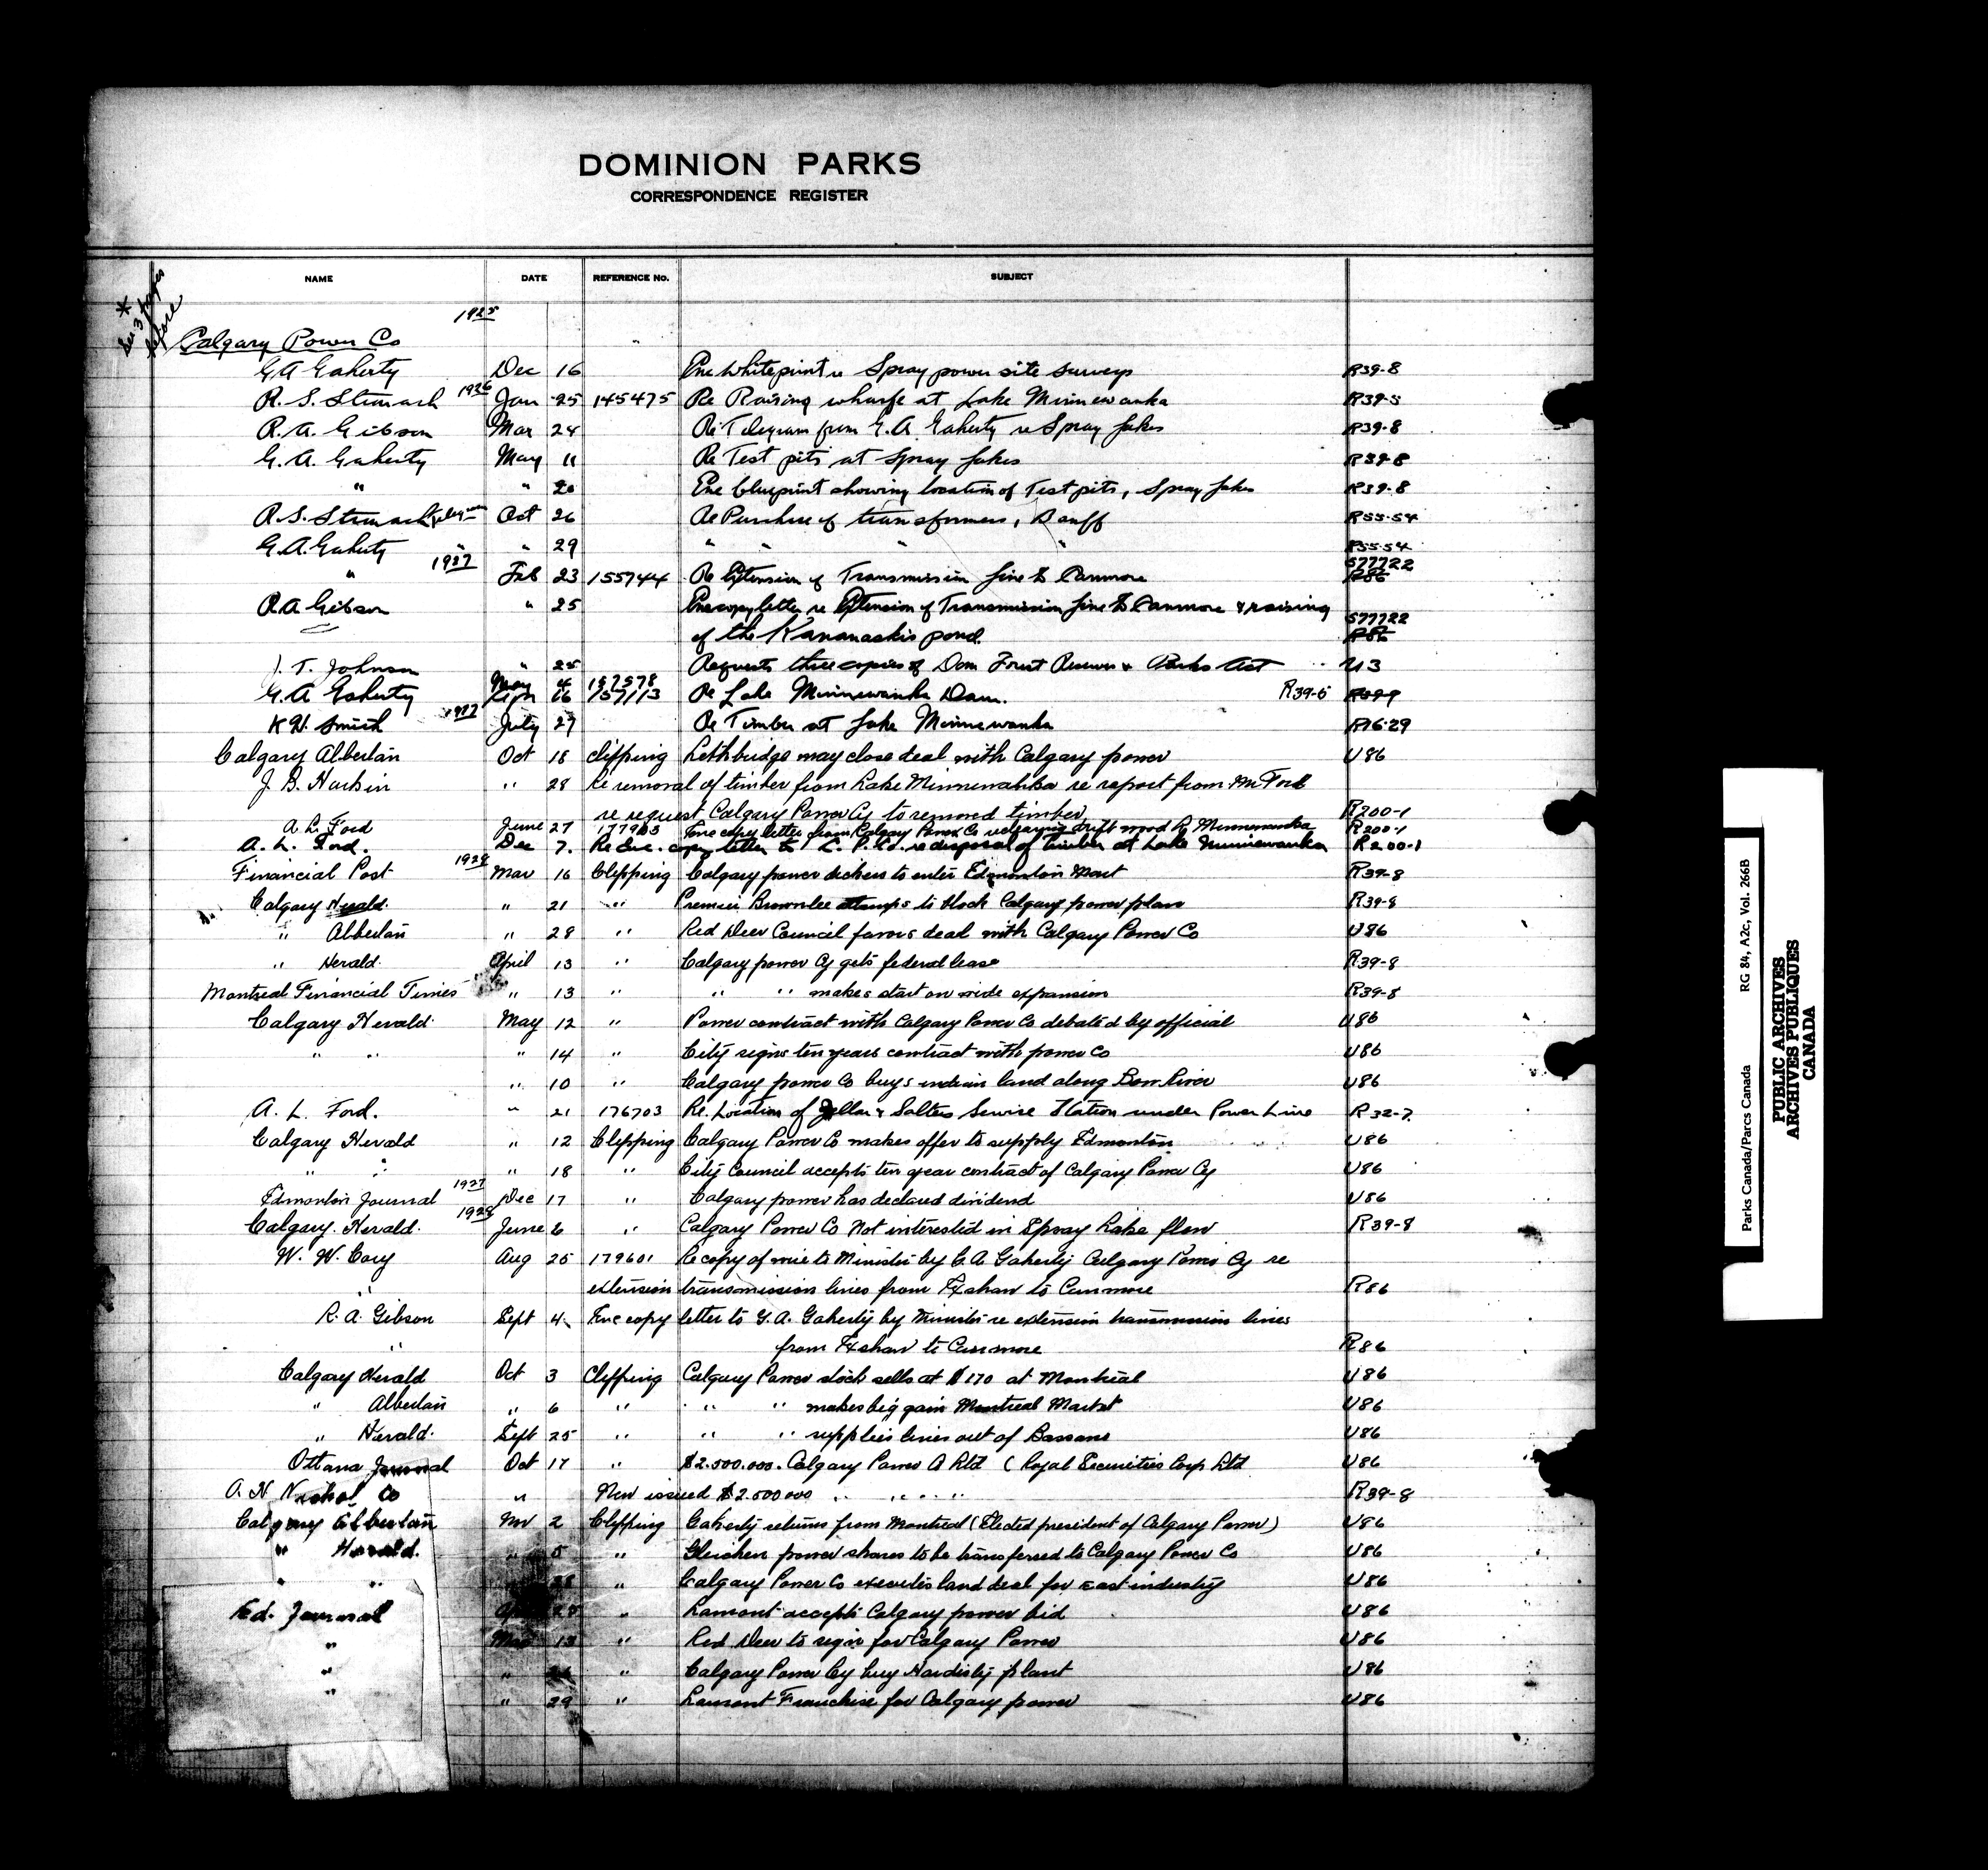 DOMINION PARKS
CORRESPONDENCE REGISTER
NAME DATE REFERENCE No. SUBJECT
* See 3 pages before
1925
Calgary Power Co
G A Gaherty Dec 16 Enc Whiteprint re Spray power site surveys R39-8
R. S. Stronach 1926 Jan 25 145475 Re Raising wharfe at Lake Minnewanka R39-5
R. A. Gibson Mar 24 Re Telegram from G. A. Gaherty re Spray Lakes R39-8
G. A. Gaherty May 11 Re Test pits at Spray Lakes R39-8
" " 20 Enc blueprint showing location of Test pits, Spray Lakes R39-8
R. S. Stronach telegram Oct 26 Re Purchase of transformers, Banff R55-54
G. A. Gaherty " " 29 " " " " R55-54
" 1927 Feb 23 155744 Re Extension of Transmission Line to Canmore 577722 R86
R. A. Gibson " 25 Enc copy letter re Extension of Transmission Line to Canmore & raising
of the Kananaskis pond. 577722 R86
J. T. Johnson " 25 Requests three copies of Dom Forest Reserves & Parks Act U3
May 4 157578
G. A. Gaherty Apr 16 157113 Re Lake Minnewanka Dam. R39-5
K H. Smith 1927 July 27 Re Timber at Lake Minnewanka R16-29
Calgary Albertan Oct 18 clipping Lethbridge may close deal with Calgary power U86
J. B. Harkin " 28 Re removal of timber from Lake Minnewanka re report from Mr Ford
re request Calgary Power Cy to removed timber R200-1
A. L. Ford June 27 177903 Enc copy letter from Calgary Power Co re drift wood L. Minnewanka R200-1
A. L. Ford. Dec 7. Re Enc. copy letter to C. P. Co. re disposal of timber at Lake Minnewanka R200-1
Financial Post 1928 Mar 16 Clipping Calgary power dickers to enter Edmonton Mart R39-8
Calgary Herald " 21 " Premier Brownlee attemps to block Calgary power plan R39-8
" Albertan " 28 " Red Deer Council favors deal with Calgary Power Co U86
" Herald April 13 " Calgary power Cy gets federal lease R39-8
Montreal Financial Times " 13 " " " makes start on wide expansion R39-8
Calgary Herald May 12 " Power contract with Calgary Power Co debated by official U86
" " " 14 " City signs ten years contract with power Co U86
" 10 " Calgary power Co buys indian land along Bow River U86
A. L. Ford. " 21 176703 Re. Location of & Salters Service Station under Power Line R32-7
Calgary Herald " 12 Clipping Calgary Power Co makes offer to supply Edmonton U86
" " " 18 " City Council accepts ten year contract of Calgary Power Cy U86
Edmonton Journal 1927 Dec 17 " Calgary power has declared dividend U86
Calgary Herald 1928 June 6 " Calgary Power Co Not interested in Spray Lake flow R39-8
W. W. Cory Aug 25 179601 Re copy of wire to Minister by G. A Gaherty Calgary Power Cy re
" extension transmission lines from Exshaw to Canmore R86
R. A. Gibson Sept 4. Enc copy letter to G. A. Gaherty by Minister re extension transmission lines
" from Exshaw to Canmore R86
Calgary Herald Oct 3 Clipping Calgary Power stock sells at $170 at Montreal U86
" Albertan " 6 " " " makes big gain Montreal Market U86
" Herald Sept 25 " " " supplies lines out of Bassano U86
Ottawa Journal Oct 17 " $2.500.000. Calgary Power Co Ltd (Royal Securities Corp Ltd U86
A. H Nichol Co " New issued $2.500000 " " " " R39-8
Calgary Albertan Nov 2 Clipping Gaherty returns from Montreal (Elected president of Calgary Power) U86
" Herald. " 5 " Gleichen power shares to be transferred to Calgary Power Co U86
" " 28 " Calgary Power Co executes land deal for East industry U86
Ed. Journal 25 " Lamont accepts Calgary power bid U86
" Mar 13 " Red Deer to sign for Calgary Power U86
" " " Calgary Power Cy buy Hardisty plant U86
" " 29 " Lamont Franchise for Calgary power U86
Parks Canada/Parcs Canada RG 84, A2c, Vol. 266B
PUBLIC ARCHIVES
ARCHIVES PUBLIQUES
CANADA